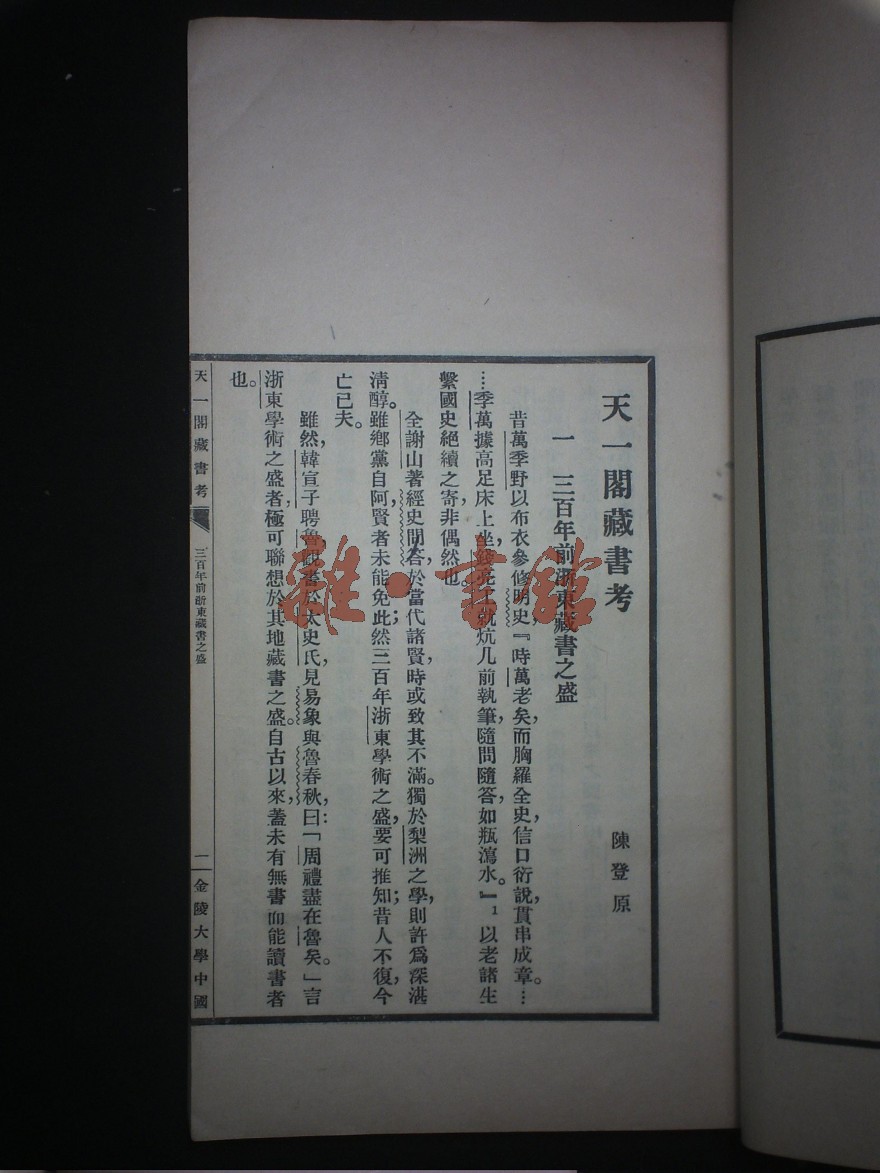 天一閣藏書考
一　三百年前浙東藏書之盛
陳登原
昔萬季野以布衣參修明史，『時萬老矣，而胸羅全史，信口衍說，貫串成章。…
…季萬據高足床上坐，錢亮工就炕几前執筆，隨問隨答，如瓶瀉水。』1 以老諸生
繫國史絕續之寄，非偶然也。
全謝山著經史問答，於當代諸賢，時或致其不滿。獨於梨洲之學，則許爲深湛
淸醇。雖鄕黨自阿，賢者未能免此；然三百年浙東學術之盛，要可推知；昔人不復，今
亡已夫。
雖然，韓宣子聘魯，觀書於太史氏，見易象與魯春秋，曰：「周禮盡在魯矣。」言
浙東學術之盛者，極可聯想於其地藏書之盛。自古以來，蓋未有無書而能讀書者
也。
天一閣藏書考
三百年前浙東藏書之盛
一
金陵大學中國
雒·書館